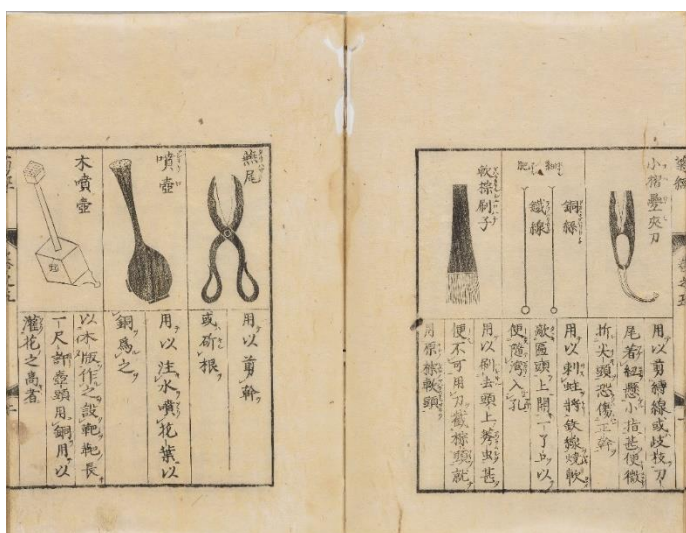 小摺疊夾刀
用以剪縛線或歧枝刀
尾着紐懸小指甚便微
折尖頭恐傷正幹
銅線
鐵線
用以刺蛀將鉄線燒軟
敲匾頭上開一了口以
便隨灣入孔
軟棕刷子
用以刷去頭上莠虫甚
便不可用刀截棕頭就
用原棕軟頭
燕尾
用以剪幹
或斫根
噴壺
用以注水噴花葉以
銅爲之
木噴壺
以木版作之設靶靶長
一尺許壺頭用銅用以
灌花之高者